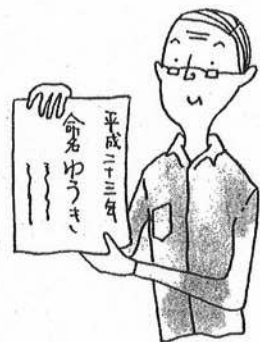 平成二十三年
命名 ゆうき